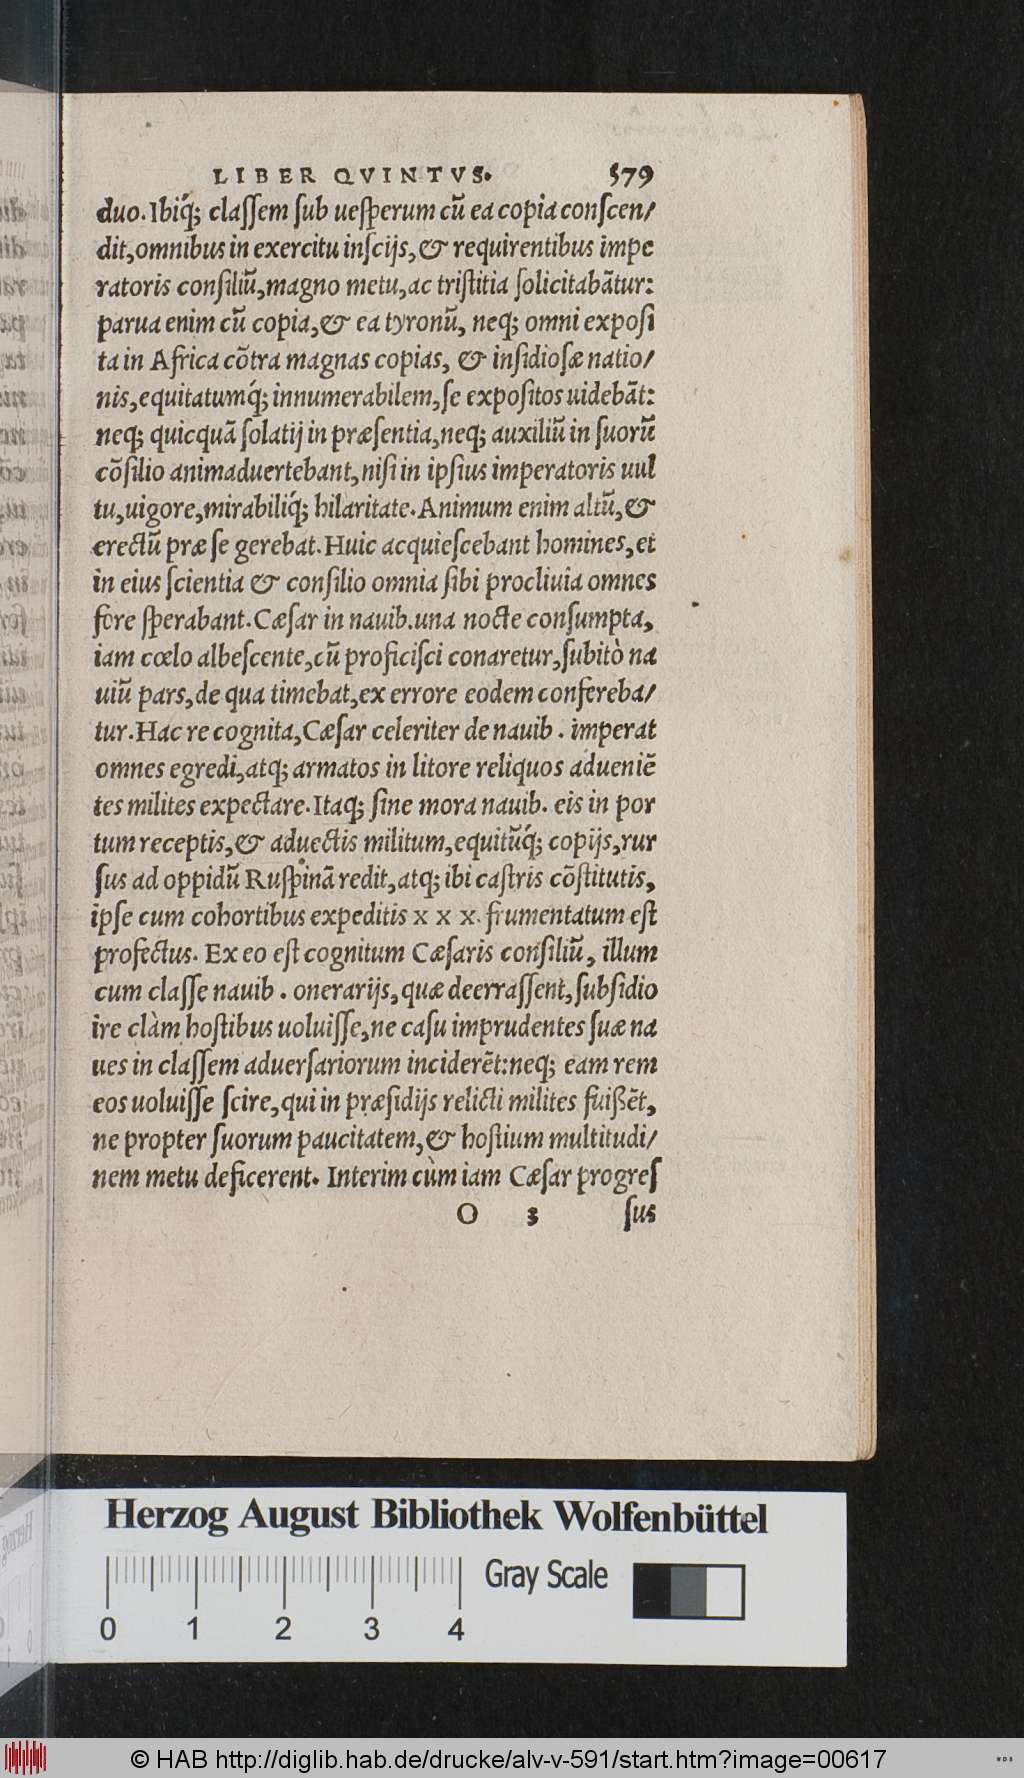 LIBER QVINTVS. 579
duo. Ibiq́; claſſem ſub ueſperum cũ ea copia conſcen/
dit, omnibus in exercitu inſcijs, & requirentibus impe
ratoris conſiliũ, magno metu, ac triſtitia ſolicitabãtur:
parua enim cũ copia, & ea tyronũ, neq; omni expoſi
ta in Africa cõtra magnas copias, & inſidioſæ natio/
nis, equitatumq́; innumerabilem, ſe expoſitos uidebãt:
neq; quicquã ſolatij in præſentia, neq; auxiliũ in ſuorũ
cõſilio animaduertebant, niſi in ipſius imperatoris uul
tu, uigore, mirabiliq́; hilaritate. Animum enim altũ, &
erectũ præ ſe gerebat. Huic acquieſcebant homines, et
in eius ſcientia & conſilio omnia ſibi procliuia omnes
fore ſperabant. Cæſar in nauib. una nocte conſumpta,
iam cœlo albeſcente, cũ proficiſci conaretur, ſubitò na
uiũ pars, de qua timebat, ex errore eodem confereba/
tur. Hac re cognita, Cæſar celeriter de nauib. imperat
omnes egredi, atq; armatos in litore reliquos adueniẽ
tes milites expectare. Itaq; ſine mora nauib. eis in por
tum receptis, & aduectis militum, equitũq́; copijs, rur
ſus ad oppidũ Ruſpinã redit, atq; ibi caſtris cõſtitutis,
ipſe cum cohortibus expeditis x x x. frumentatum eſt
profectus. Ex eo eſt cognitum Cæſaris conſiliũ, illum
cum claſſe nauib. onerarijs, quæ deerraſſent, ſubſidio
ire clàm hoſtibus uoluiſſe, ne caſu imprudentes ſuæ na
ues in claſſem aduerſariorum inciderẽt: neq; eam rem
eos uoluiſſe ſcire, qui in præſidijs relicti milites fuißẽt,
ne propter ſuorum paucitatem, & hoſtium multitudi/
nem metu deficerent. Interim cùm iam Cæſar progreſ
O 3 ſus
Herzog August Bibliothek Wolfenbüttel
Gray Scale
0 1 2 3 4
© HAB http://diglib.hab.de/drucke/alv-v-591/start.htm?image=00617